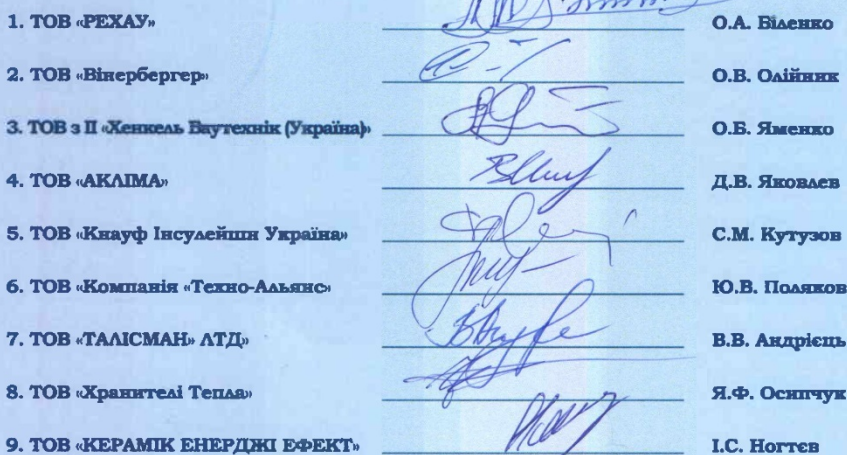 1. ТОВ «РЕХАУ» О.А. Біленко
2. ТОВ «Вінербергер» О.В. Олійник
3. ТОВ з ІІ «Хенкель Баутехнік (Україна)» О.Б. Яменко
4. ТОВ «АКЛІМА» Д.В. Яковлев
5. ТОВ «Кнауф Інсулейшн Україна» С.М. Кутузов
6. ТОВ «Компанія «Техно-Альянс» Ю.В. Поляков
7. ТОВ «ТАЛІСМАН» ЛТД» В.В. Андрієць
8. ТОВ «Хранителі Тепла» Я.Ф. Осипчук
9. ТОВ «КЕРАМІК ЕНЕРДЖІ ЕФЕКТ» І.С. Ногтєв